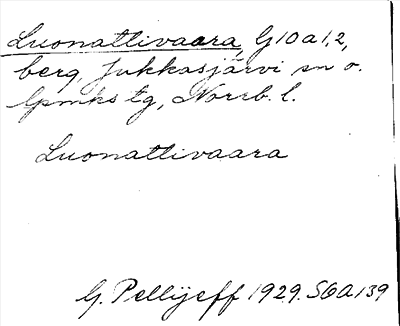 Luonattivaara, G10a1,2,
berg, Jukkasjärvi sn o.
lpmks tg, Norrb. l.
Luonattivaara
G. Pellijeff 1929. SOA 139